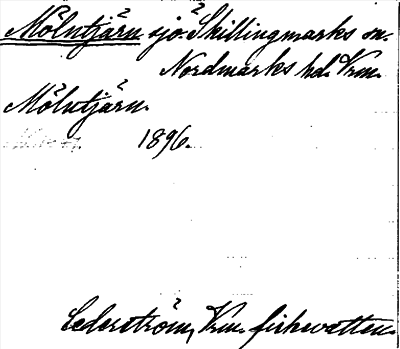 Mölntjärn sjö Skillingmarks sn.
Nordmarks hd. Vrm.
Mölntjärn.
1896.
Cederström, Vrm. fiskevatten.